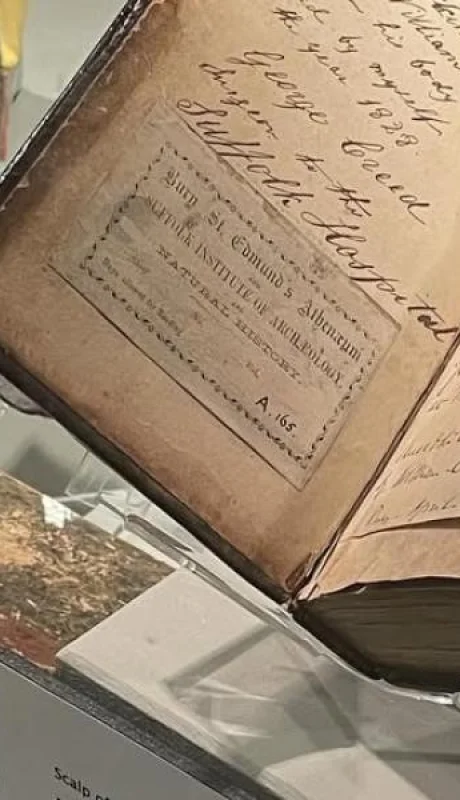 William
his body
by myself
the year 1828.
George Creed
Surgeon to the
Suffolk Hospital
Bury St. Edmund's Athenæum
AND
SUFFOLK INSTITUTE OF ARCHÆOLOGY,
AND
NATURAL HISTORY.
Days allowed for Reading
A. 165.
Scalp of